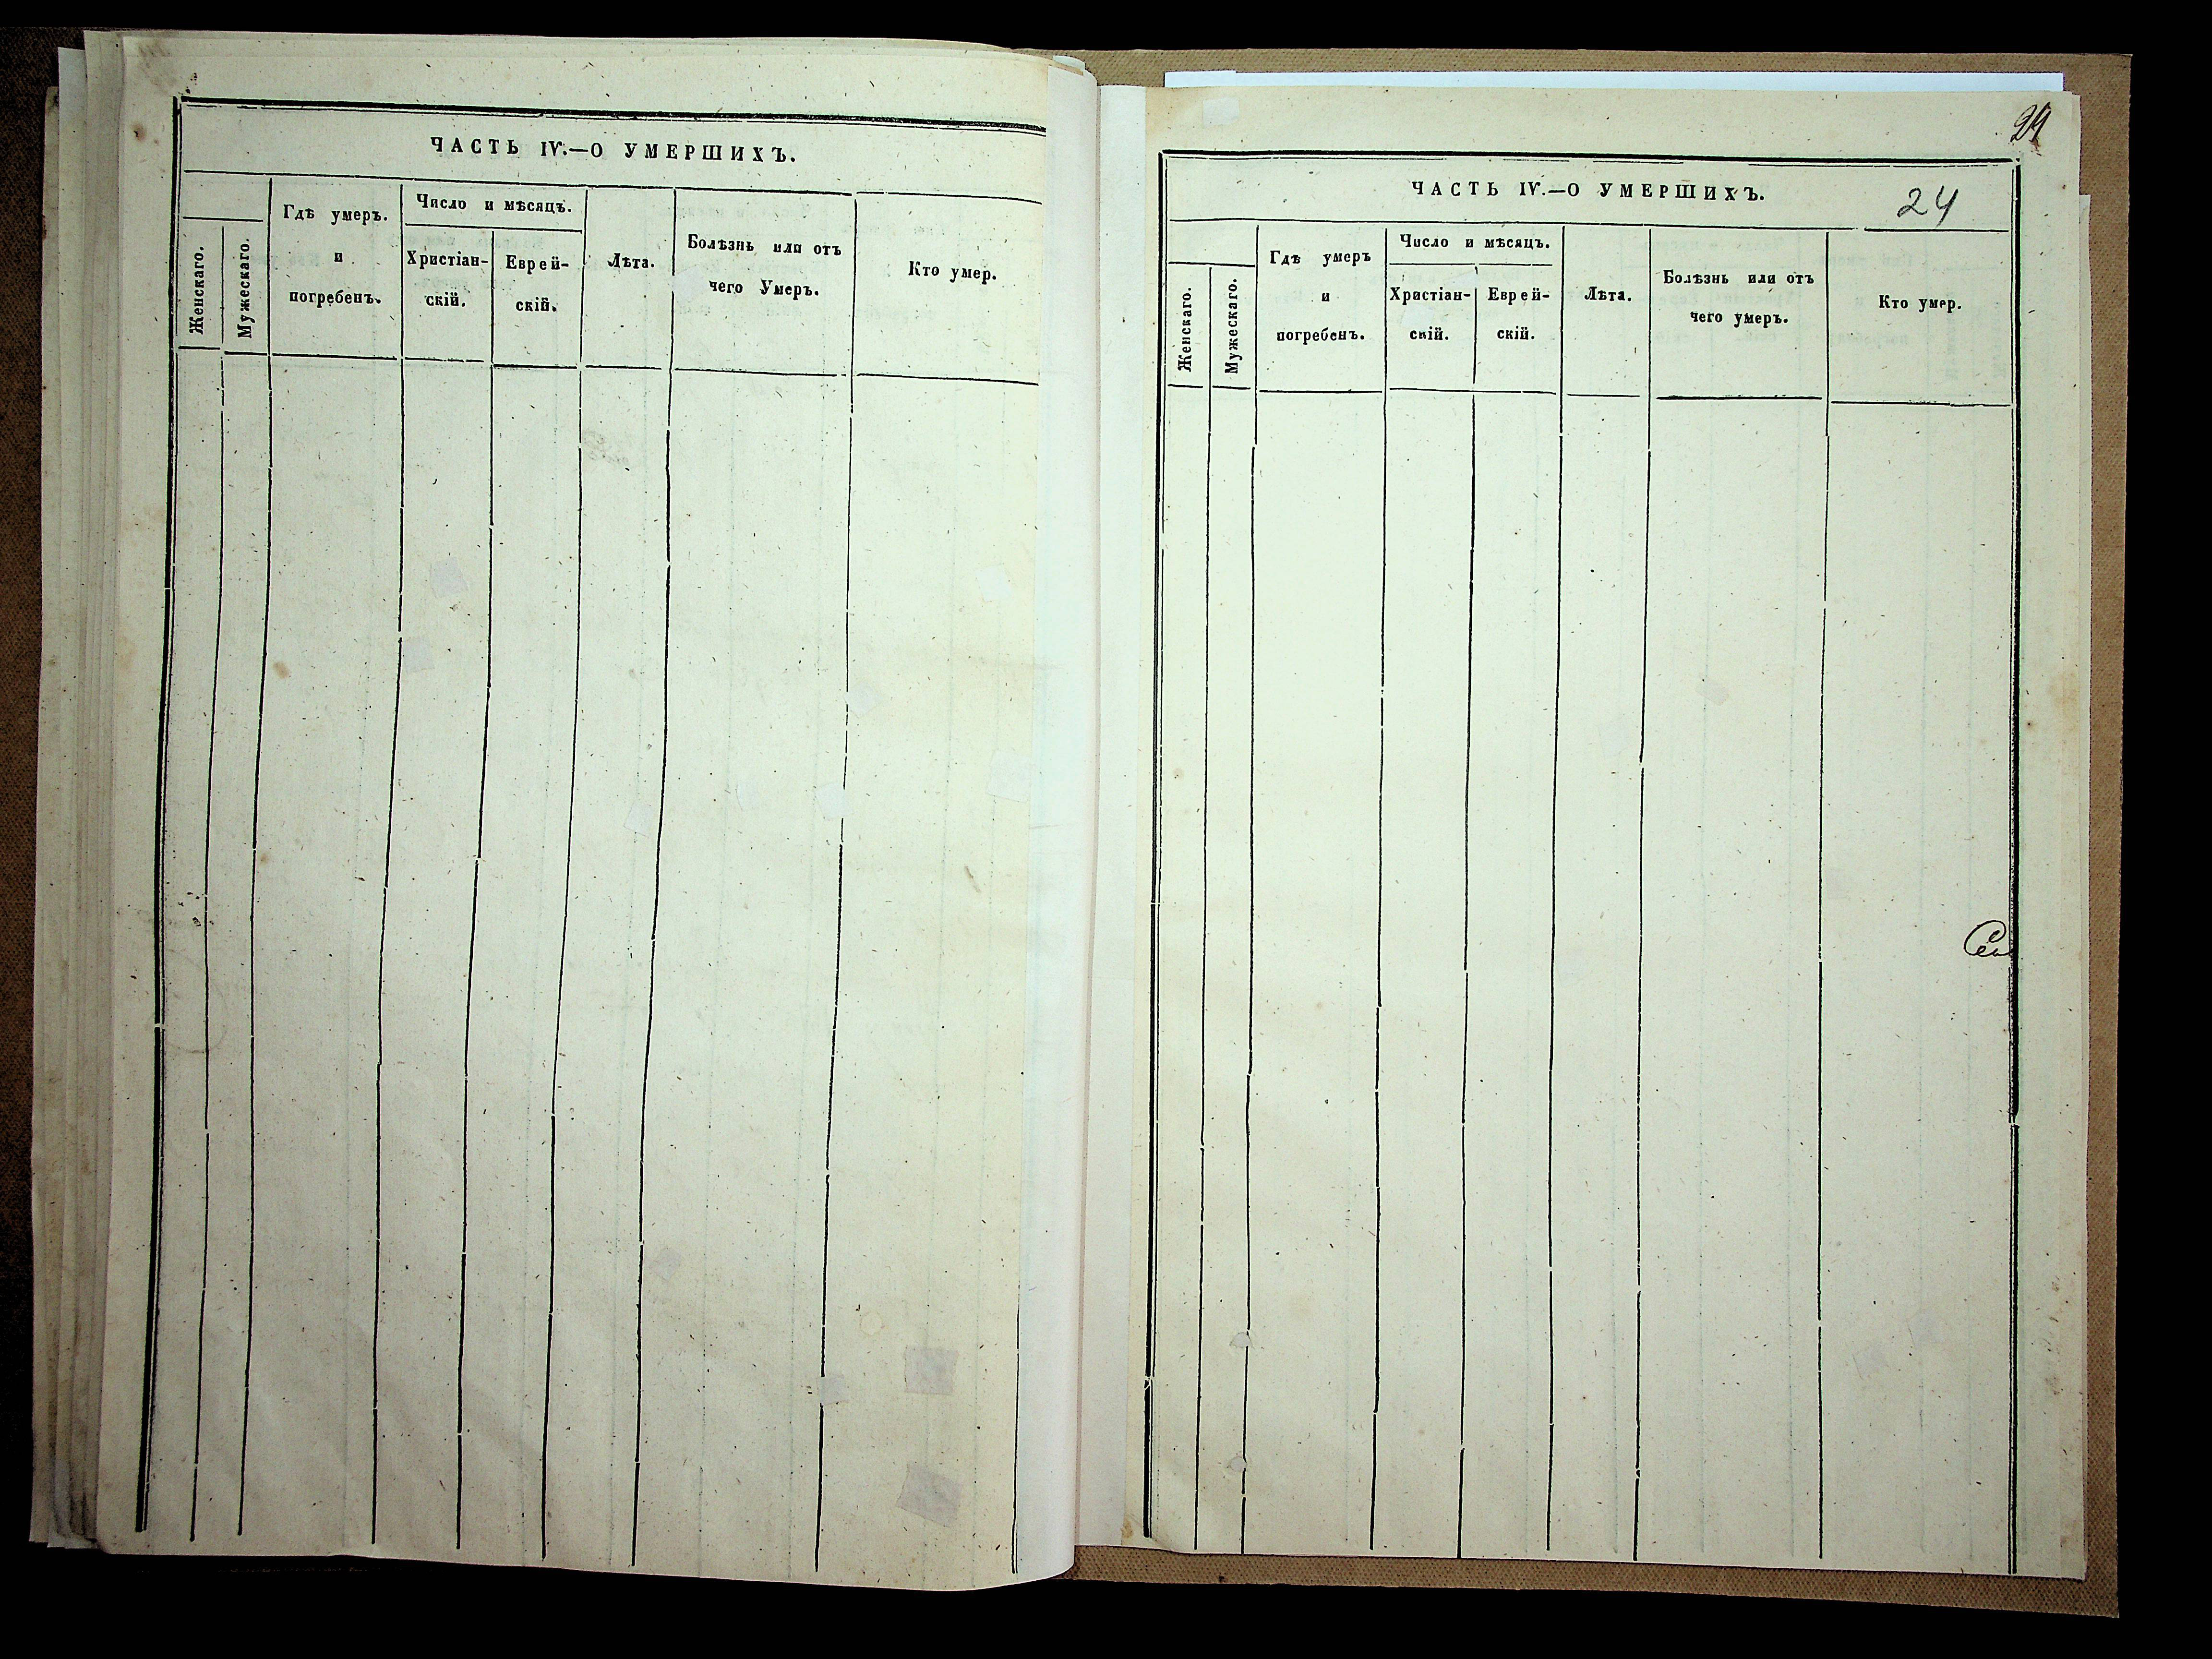 ЧАСТЬ IV.—О УМЕРШИХЪ.
Женскаго.
Мужескаго.
Гдѣ умеръ.
и
погребенъ.
Число и мѣсяцъ.
Христіан-
скій.
Еврей-
скій.
Лѣта.
Болѣзнь или отъ
чего Умеръ.
Кто умер.
24
ЧАСТЬ IV.—О УМЕРШИХЪ.
Женскаго.
Мужескаго.
Гдѣ умеръ
и
погребенъ.
Число и мѣсяцъ.
Христіан-
скій.
Еврей-
скій.
Лѣта.
Болѣзнь или отъ
чего умеръ.
Кто умер.